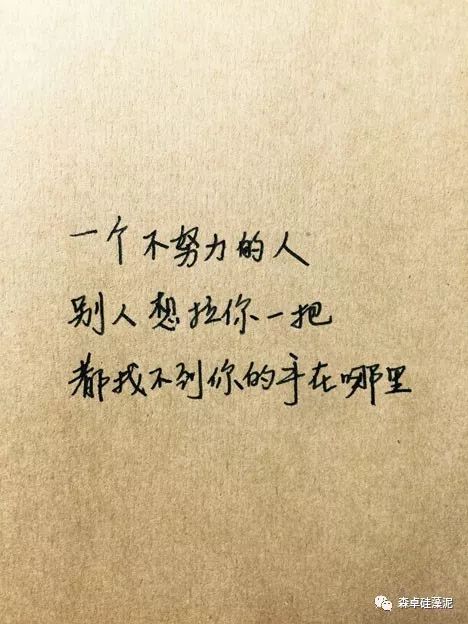 一个不努力的人
别人想拉你一把
都找不到你的手在哪里
森卓硅藻泥